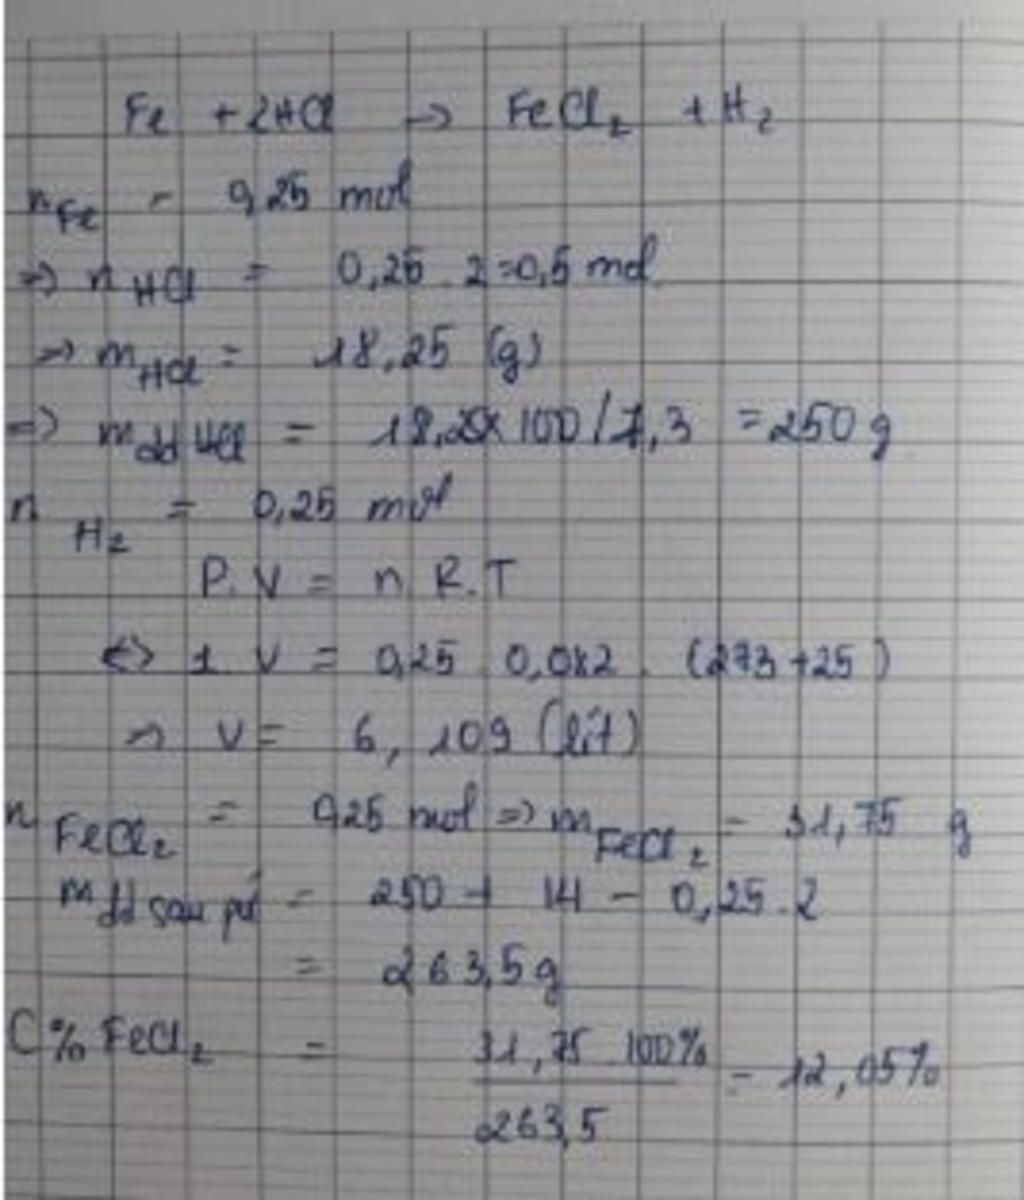 Fe + 2HCl → FeCl₂ + H₂
n Fe = 0,25 mol
=> n HCl = 0,25 . 2 = 0,5 mol
=> m HCl = 18,25 (g)
=> m dd HCl = 18,25 x 100 / 7,3 = 250 g
n H₂ = 0,25 mol
P.V = n.R.T
<=> 1.V = 0,25 . 0,082 . (273 + 25)
=> V = 6,109 (lít)
n FeCl₂ = 0,25 mol => m FeCl₂ = 31,75 g
m dd sau pứ = 250 + 14 - 0,25.2
= 263,5 g
C% FeCl₂ = 31,75 100% / 263,5 = 12,05%